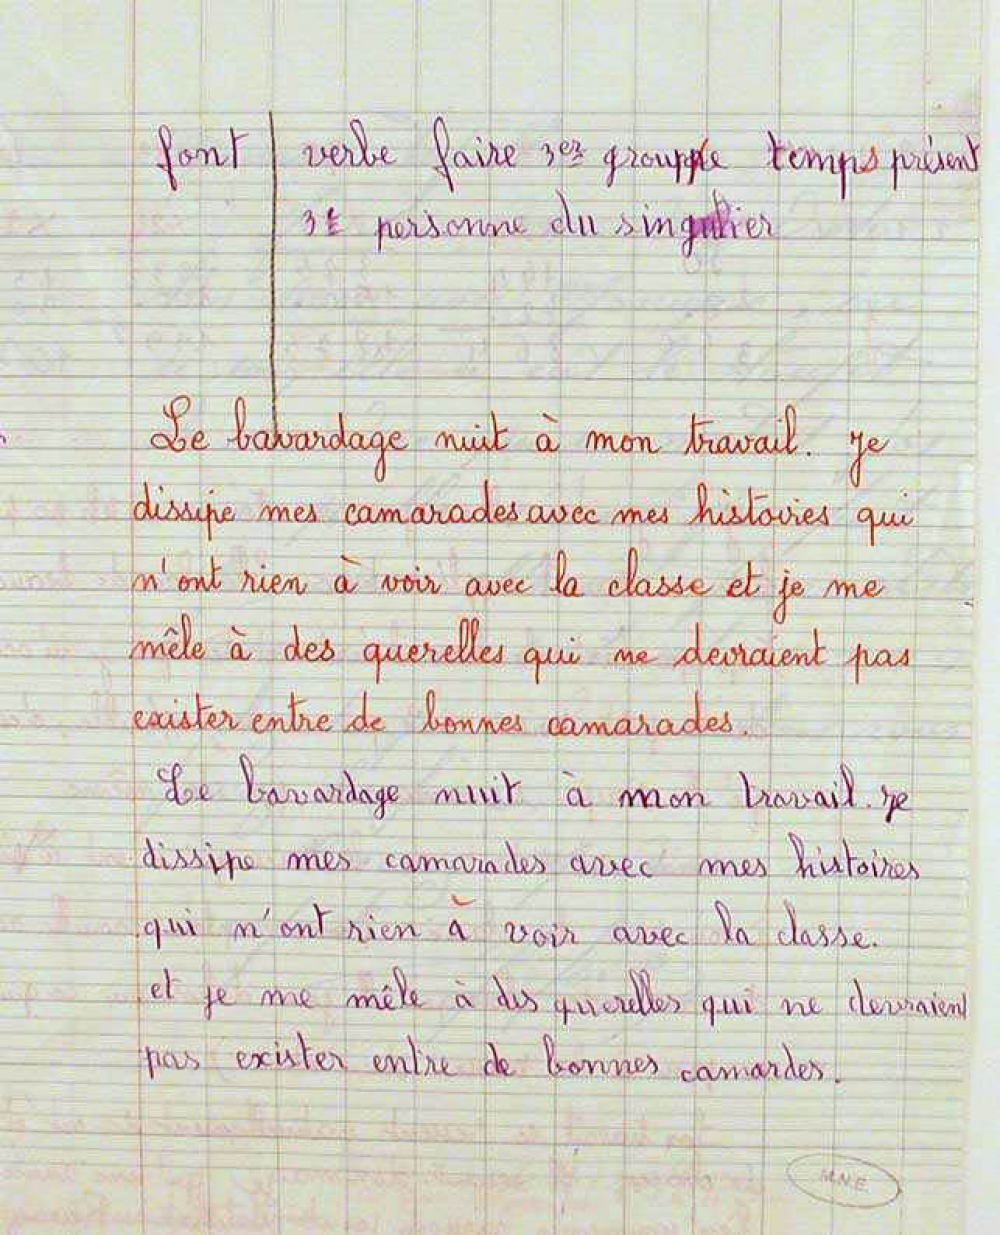 font verbe faire 3em grouppe temps présent
3e personne du singulier
Le bavardage nuit à mon travail. Je
dissipe mes camarades avec mes histoires qui
n'ont rien à voir avec la classe et je me
mêle à des querelles qui ne devraient pas
exister entre de bonnes camarades.
Le bavardage nuit à mon travail. Je
dissipe mes camarades avec mes histoires
qui n'ont rien à voir avec la classe.
et je me mêle à des querelles qui ne devraient
pas exister entre de bonnes camardes.
M.N.E.